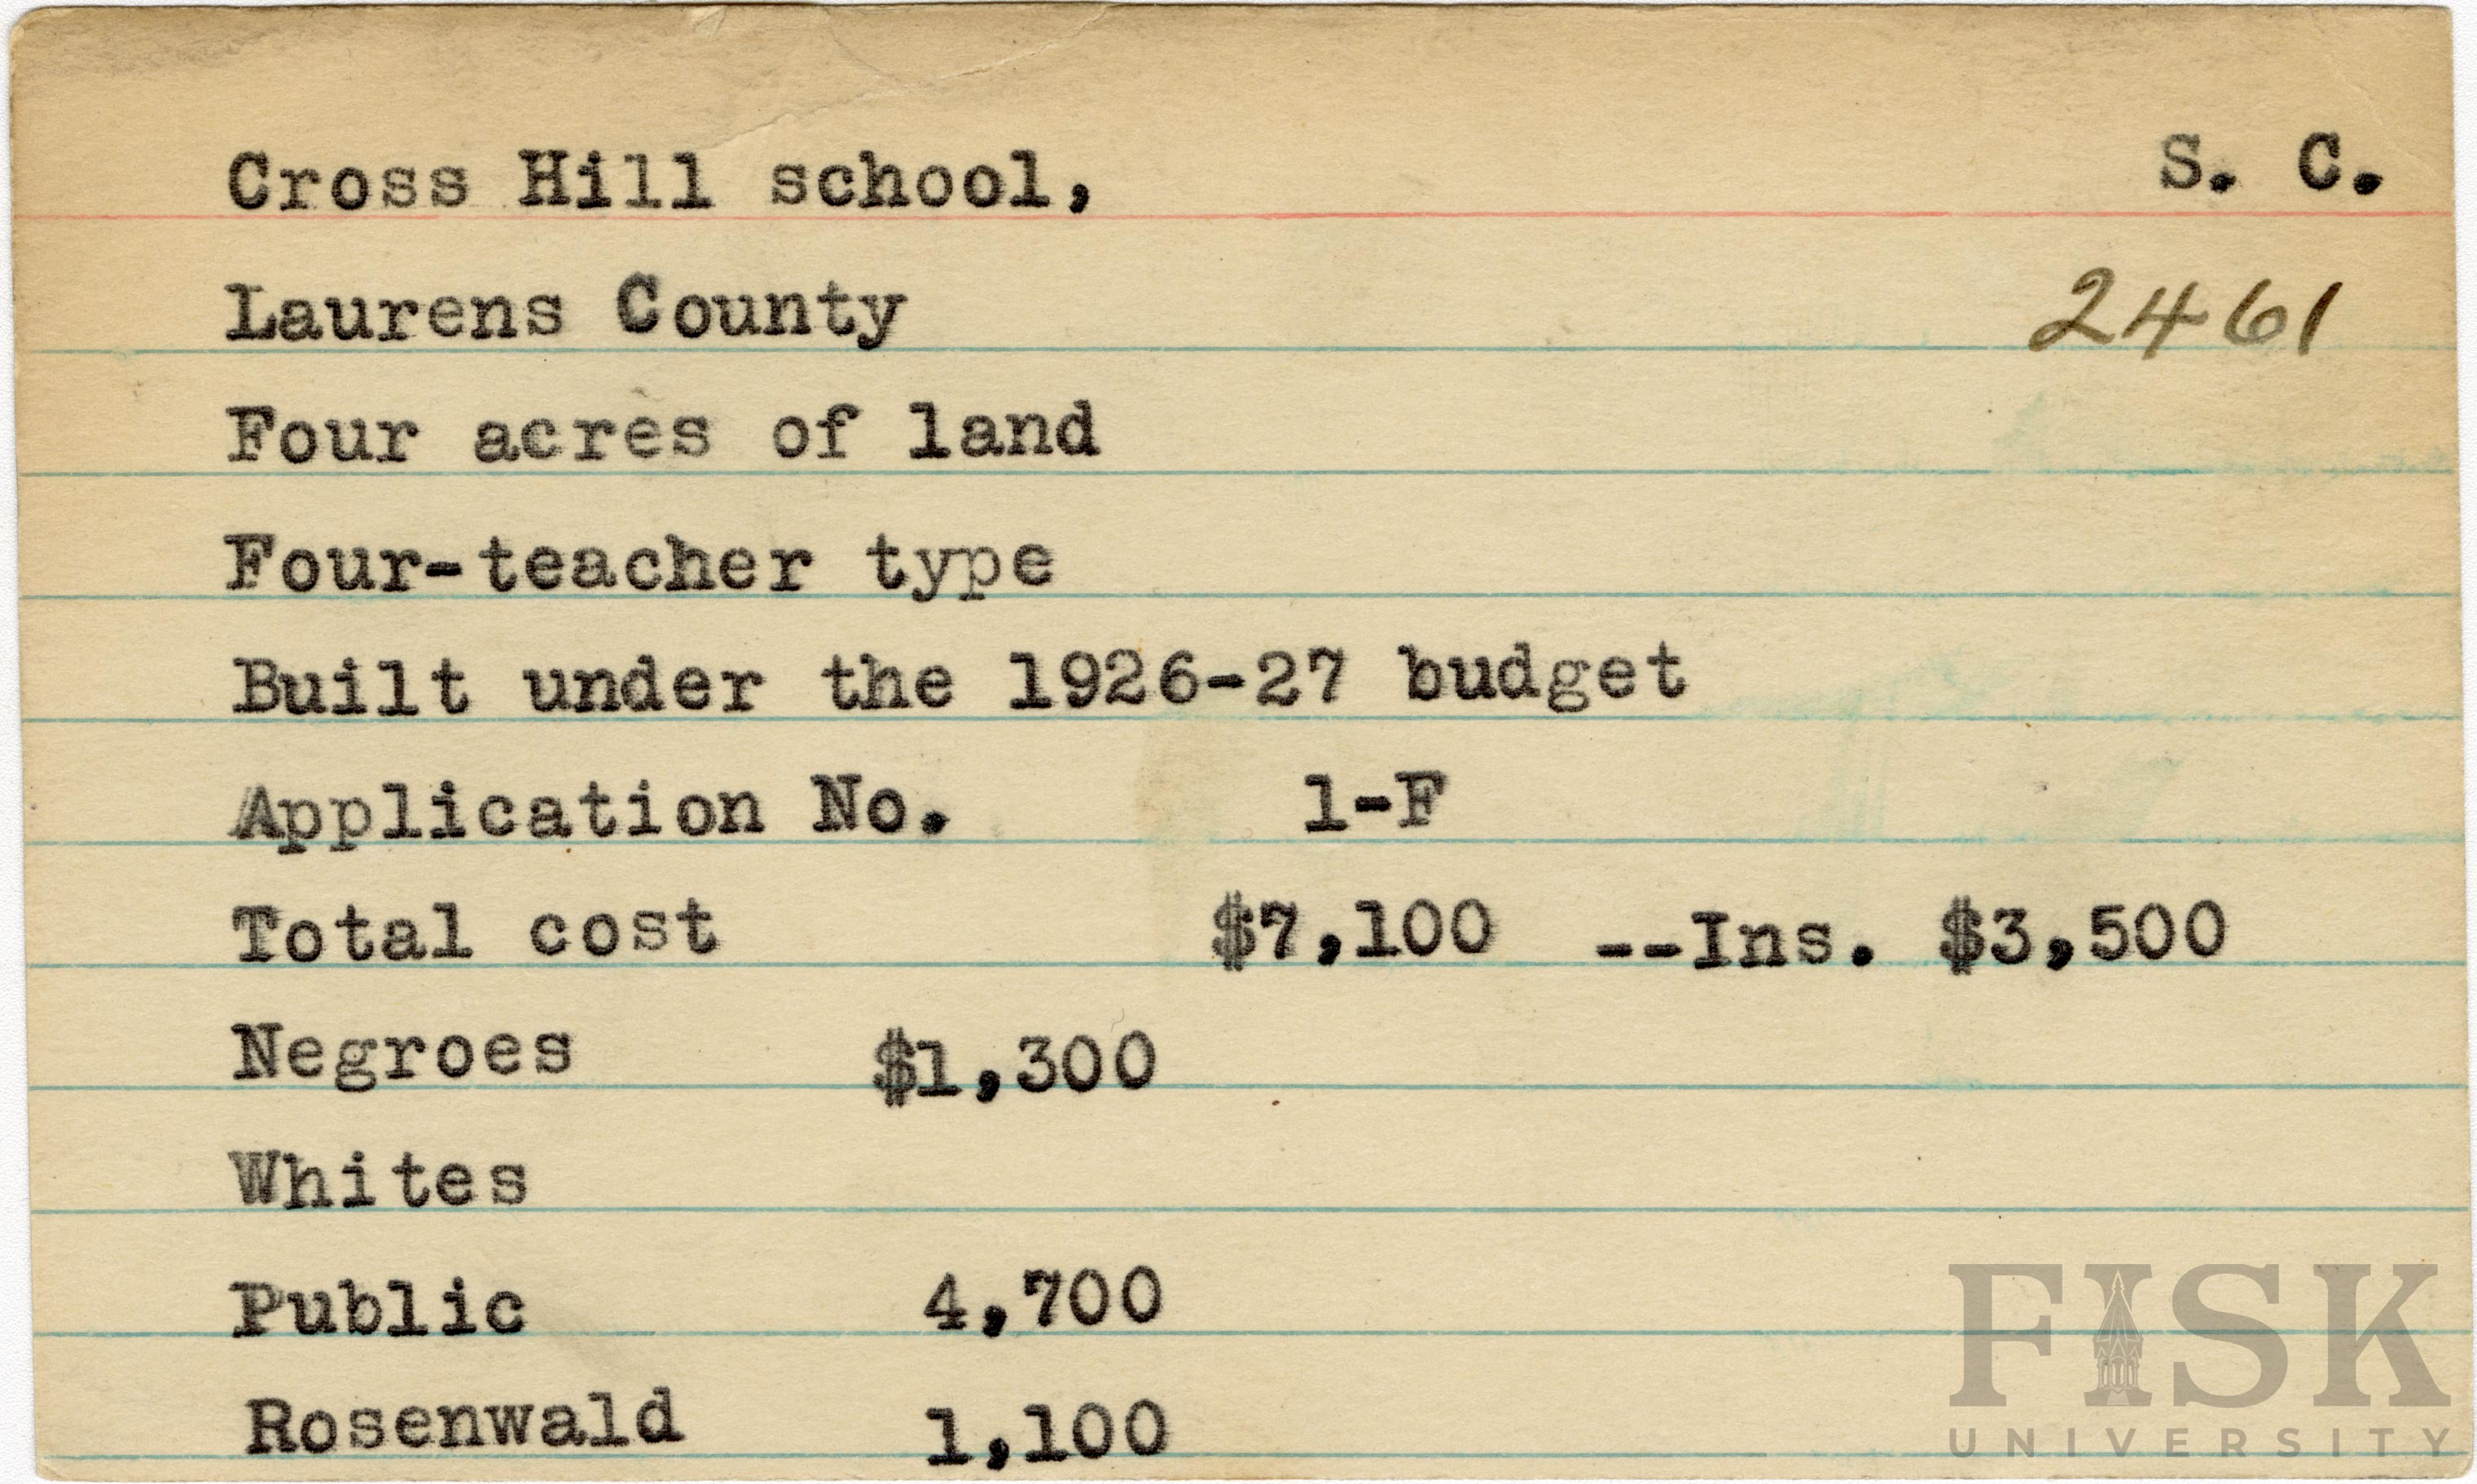 Cross Hill school, S. C.
Laurens County 2461
Four acres of land
Four-teacher type
Built under the 1926-27 budget
Application No. 1-F
Total cost $7,100 --Ins. $3,500
Negroes $1,300
Whites
Public 4,700
Rosenwald 1,100
FISK
UNIVERSITY